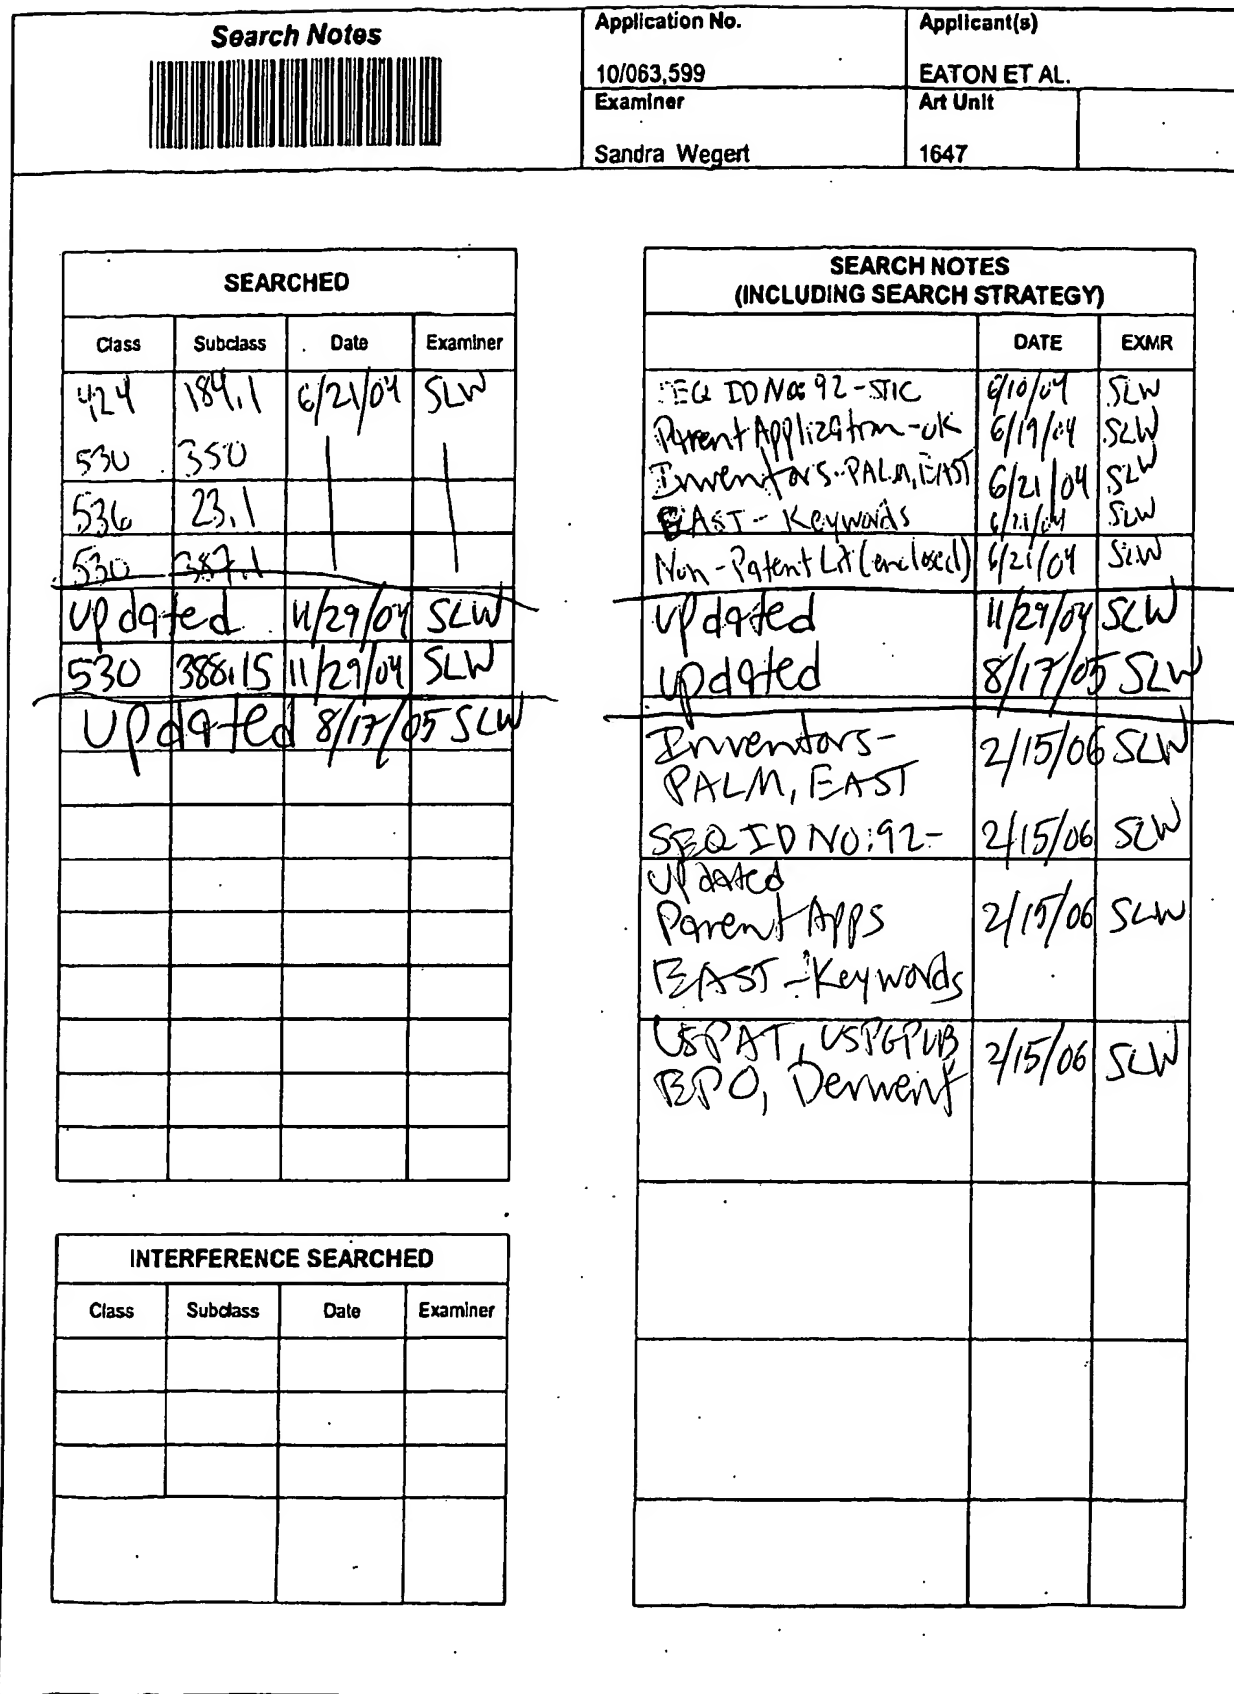 Search Notes
Application No.
Applicant(s)
10/063,599
EATON ET AL.
Examiner
Art Unit
Sandra Wegert
1647
SEARCHED
Class Subclass Date Examiner
424 184.1 6/21/04 SLW
530 350
536 23.1
530 387.1
updated 11/29/04 SLW
530 388.15 11/29/04 SLW
updated 8/17/05 SLW
INTERFERENCE SEARCHED
Class Subclass Date Examiner
SEARCH NOTES
(INCLUDING SEARCH STRATEGY)
DATE EXMR
SEQ ID No: 92 - STIC 6/10/04 SLW
Parent Application - ok 6/19/04 SLW
Inventors - PALM, EAST 6/21/04 SLW
EAST - Keywords 6/21/04 SLW
Non-Patent Lit (enclosed) 6/21/04 SLW
updated 11/29/04 SLW
updated 8/17/05 SLW
Inventors- 2/15/06 SLW
PALM, EAST
SEQ ID NO: 92- 2/15/06 SLW
updated
Parent Apps 2/15/06 SLW
EAST - Keywords
USPAT, USPGPUB 2/15/06 SLW
EPO, Derwent